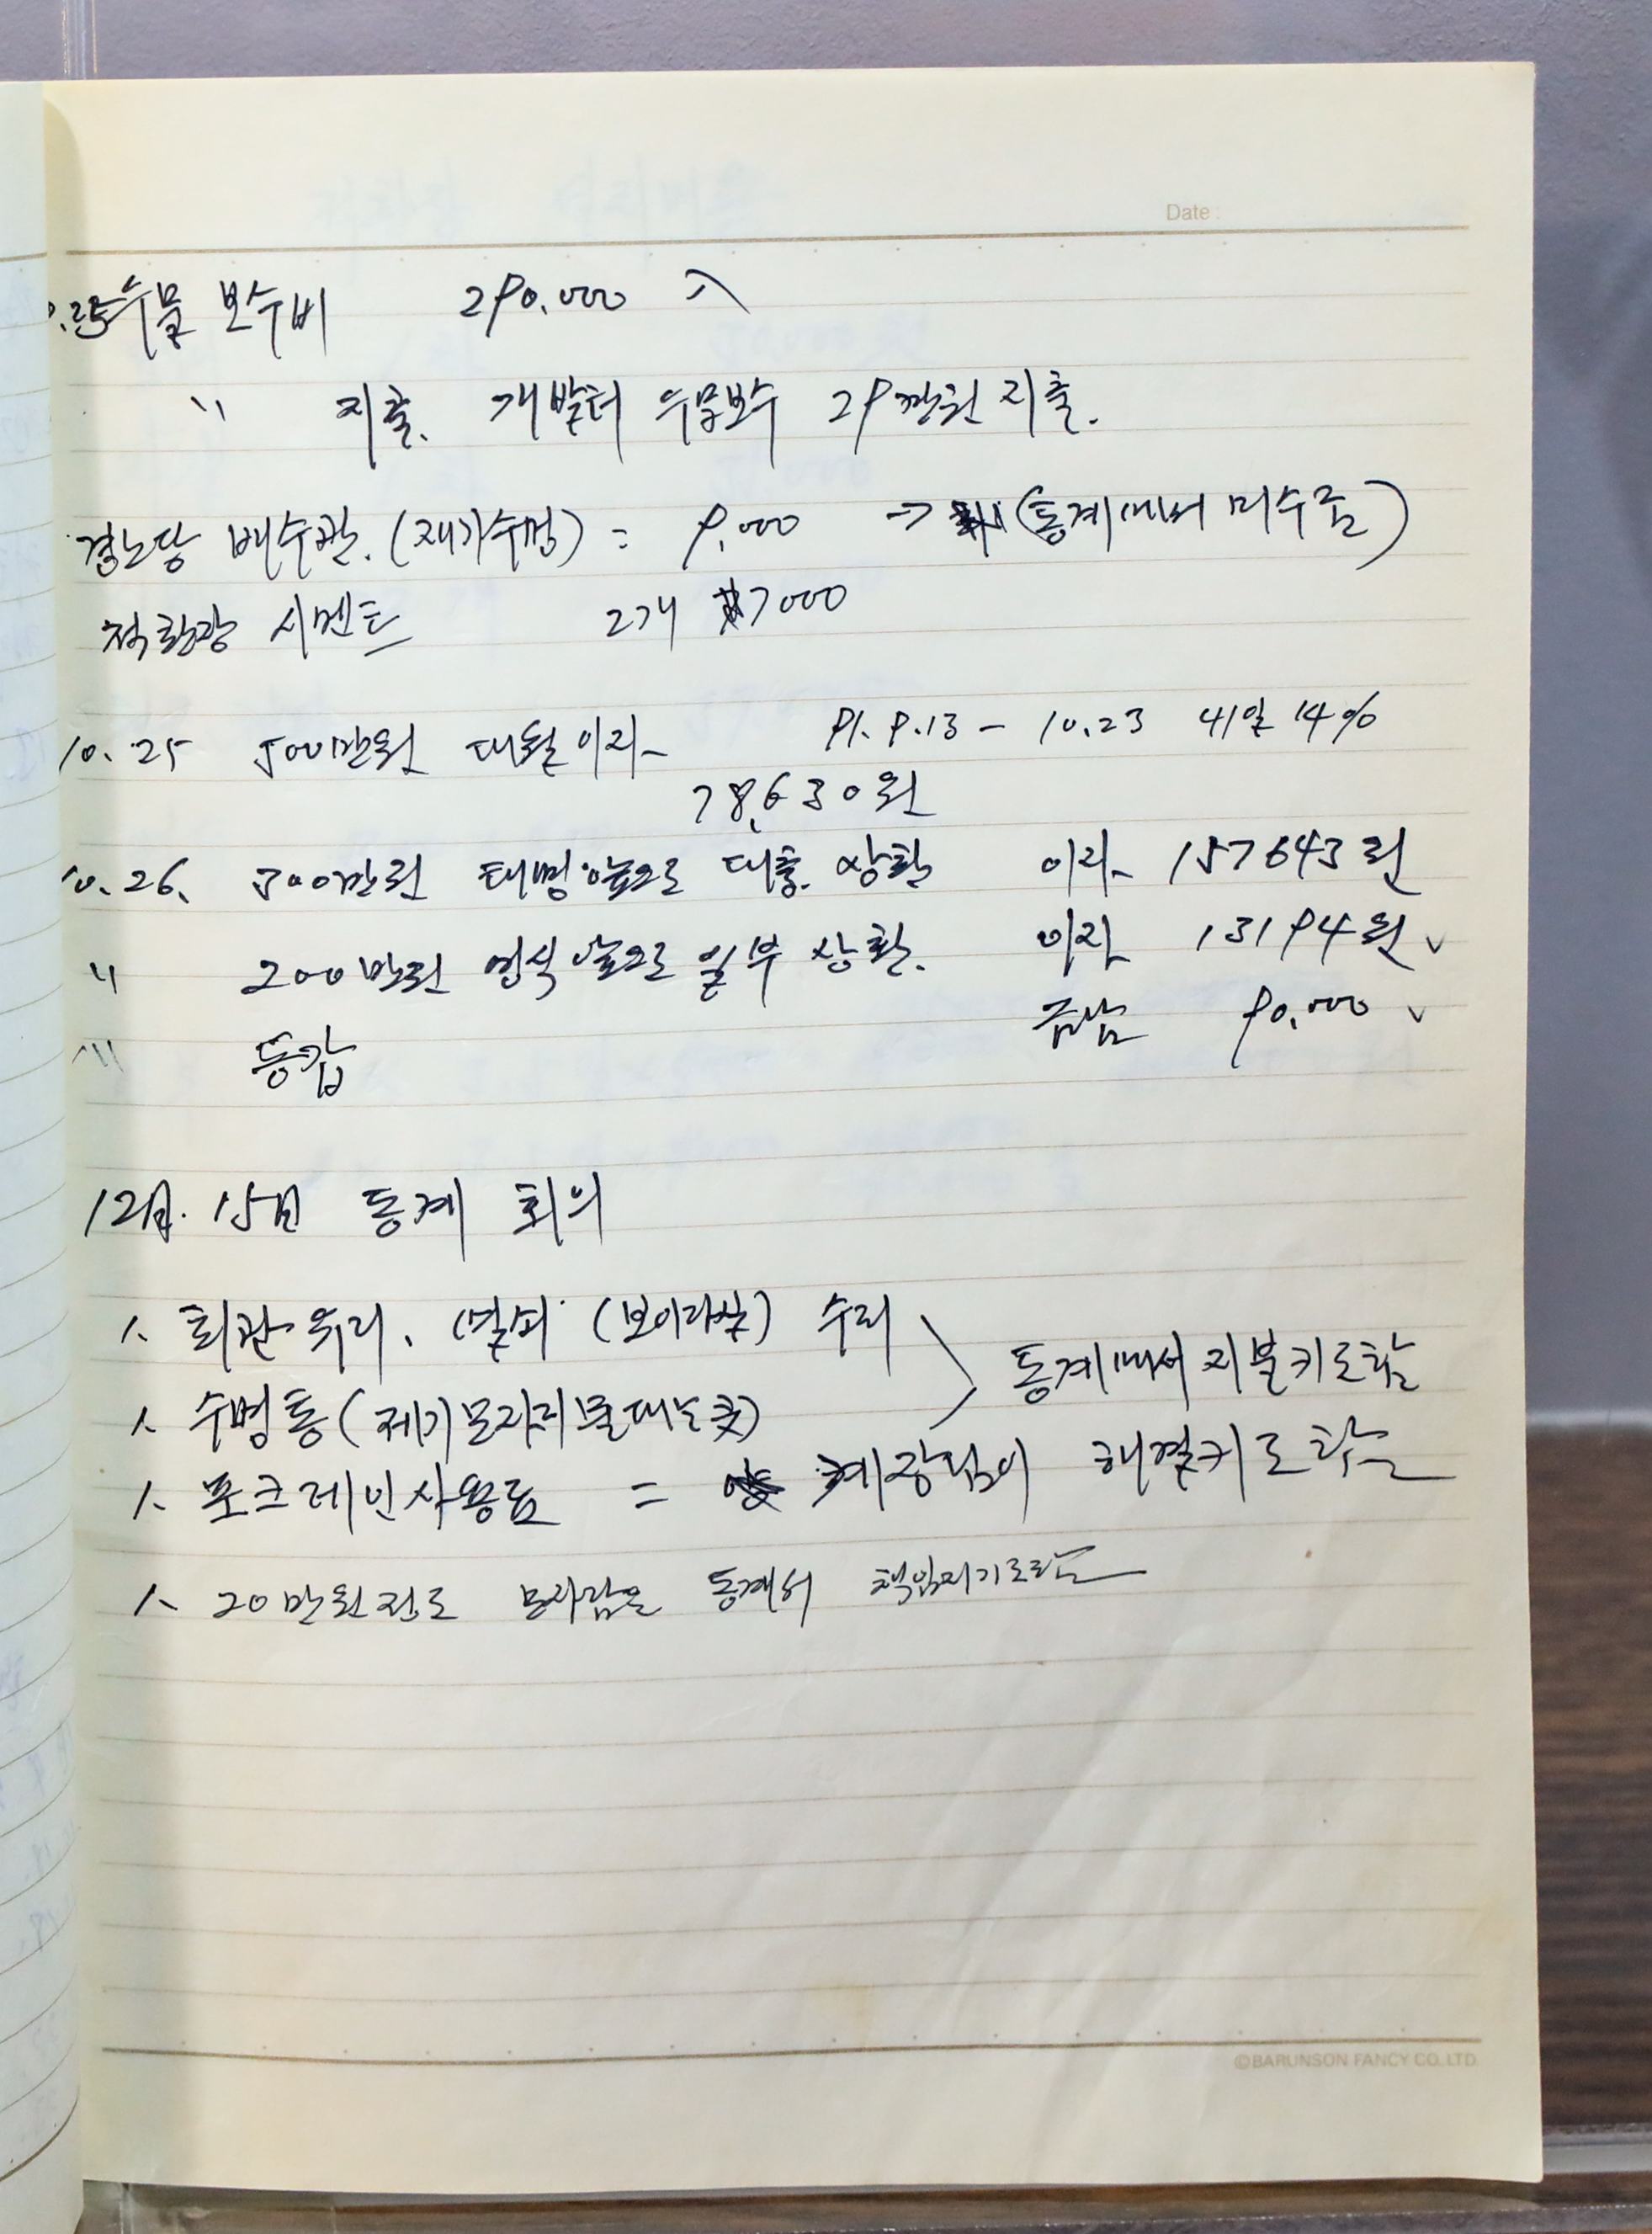 Date :
수물 보수비 290.000 入
〃 지출. 개발터 우물보수 29만원 지출.
경노당 배수관. (재가수명) = 9.000 → (통계에서 미수금)
적화장 시멘트 2개 7000
10. 25 500만원 대월이자 91. 9. 13 - 10. 23 41일 14%
78,630원
10. 26. 500만원 태명앞으로 대출. 상환 이자 157643원
〃 200만원 영식앞으로 일부 상환. 이자 13194원 ✓
〃 동갑 급남 90.000 ✓
12月. 15日 통계 회의
1. 회관 유리, 열쇠 (보이라실) 수리
통계에서 지불키로함
1. 수명통 (제기모자리물대는곳)
1. 포크레인사용료 = 계장님이 해결키로함
1. 20만원정도 모자람은 통계서 책임지기로함
©BARUNSON FANCY CO. LTD